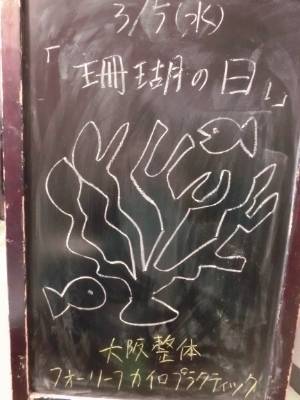 3/5(水)
「珊瑚の日」
大阪整体
フォーリーフカイロプラクティック